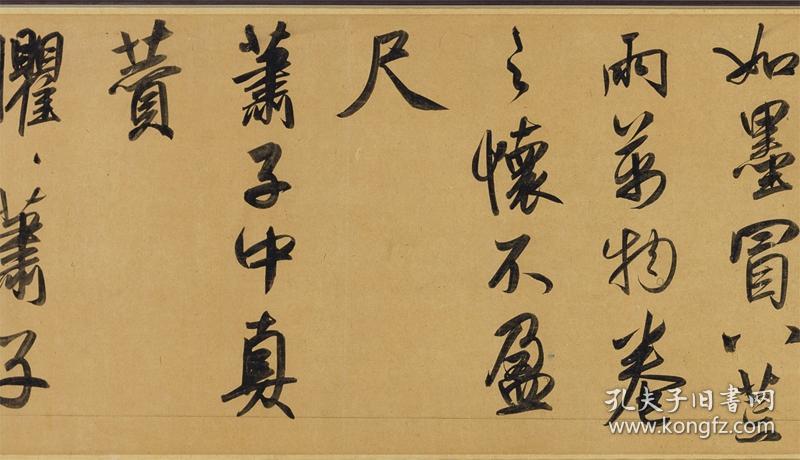 如墨冒八荒
雨萬物卷
之懷不盈
尺
蕭子中真
贊
臞、蕭子
孔夫子旧书网
www.kongfz.com